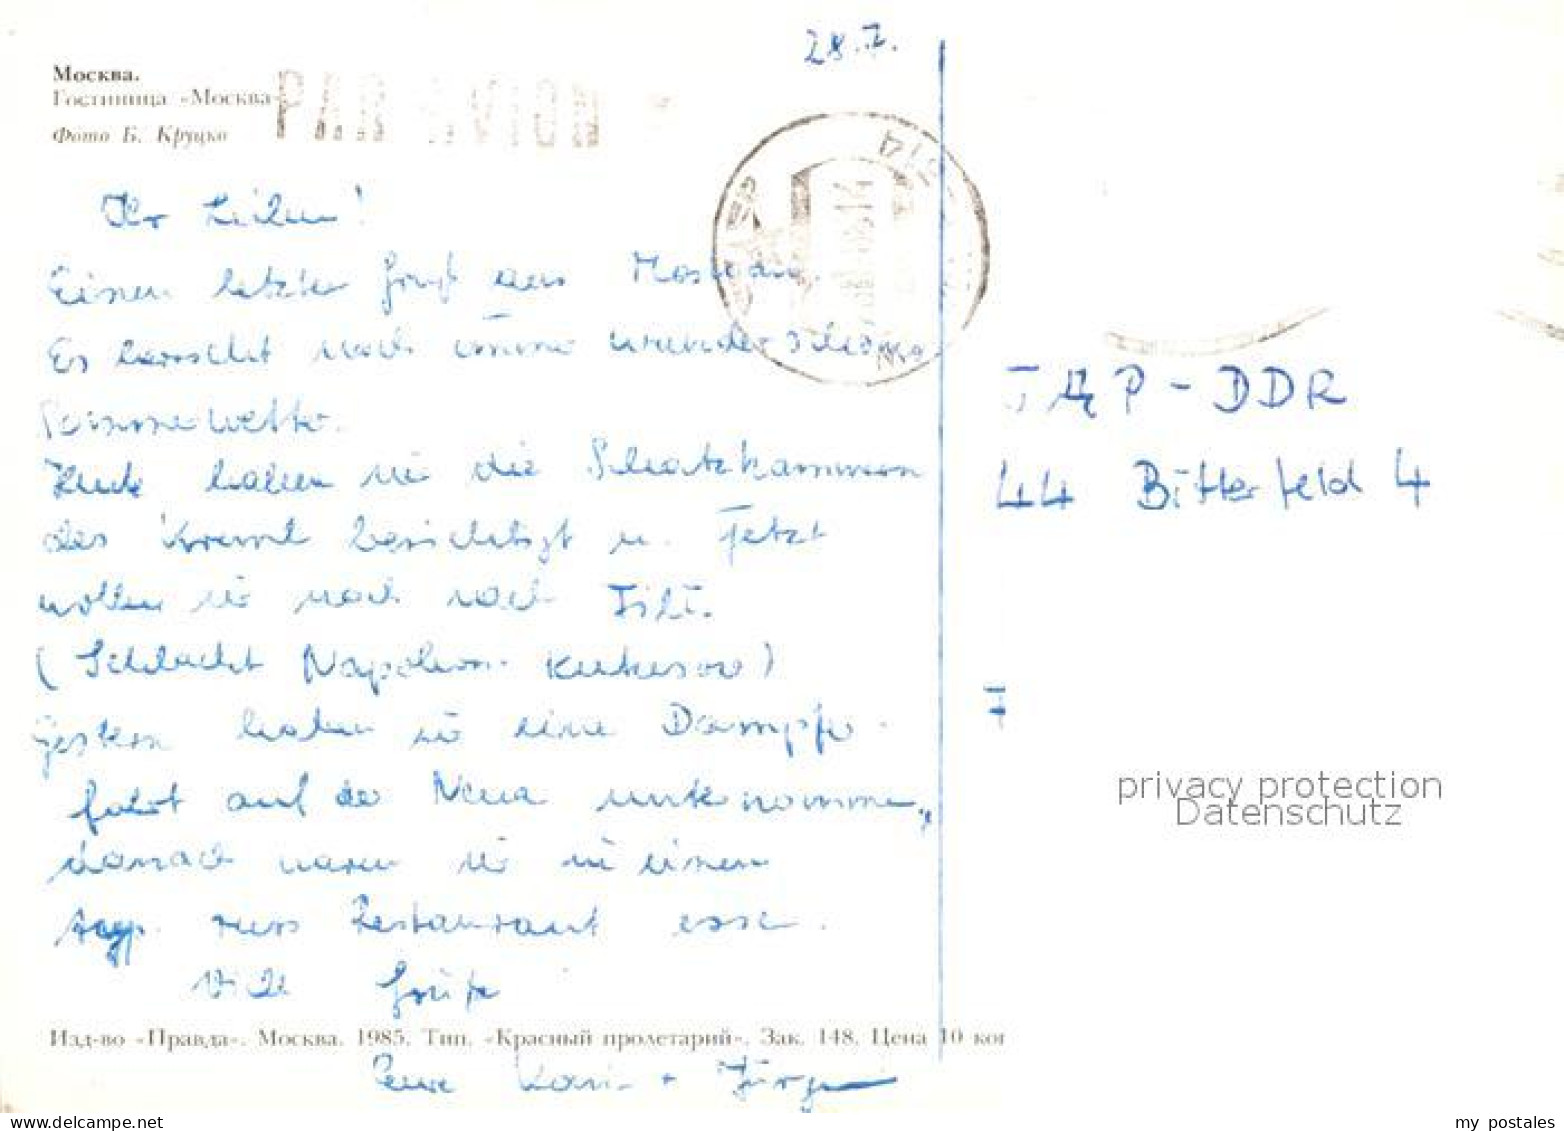 28.7.
Москва.
Гостиница «Москва»
Фото Б. Круцко
PAR AVION
Ihr Lieben!
Einen letzten Gruß aus Moskau.
Es herrscht noch immer wunderschönes
Sommerwetter.
Heute haben wir die Schatzkammern
des Kreml besichtigt u. jetzt
wollen wir noch nach Fili.
(Schlacht Napoleon - Kutusow)
Gestern haben wir eine Dampfer-
fahrt auf der unternommen,
danach waren wir in einem
typ. russ Restaurant essen.
Viele Grüße
Изд-во «Правда». Москва. 1985. Тип. «Красный пролетарий». Зак. 148. Цена 10 коп
Eure Karin + Jürgen
ГДР - DDR
44 Bitterfeld 4
privacy protection
Datenschutz
www.delcampe.net
my_postales